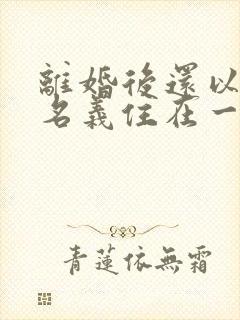 離婚後還以
名義住在一
青蓮依無霜